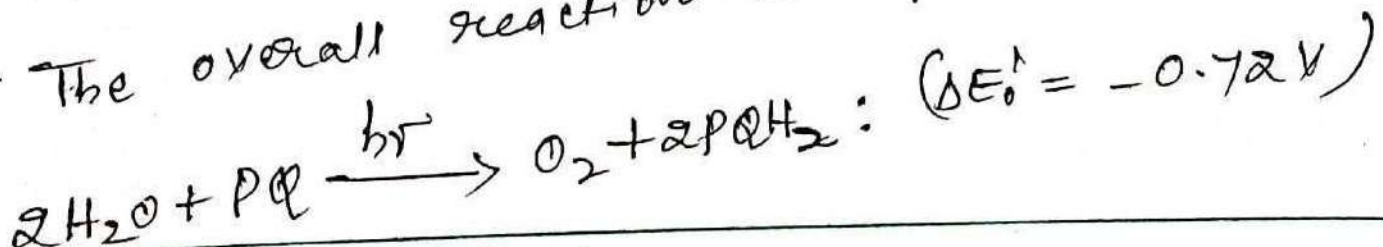 The overall reaction
2H₂O + PQ hν → O₂ + 2PQH₂ : (ΔE₀' = -0.72 V)